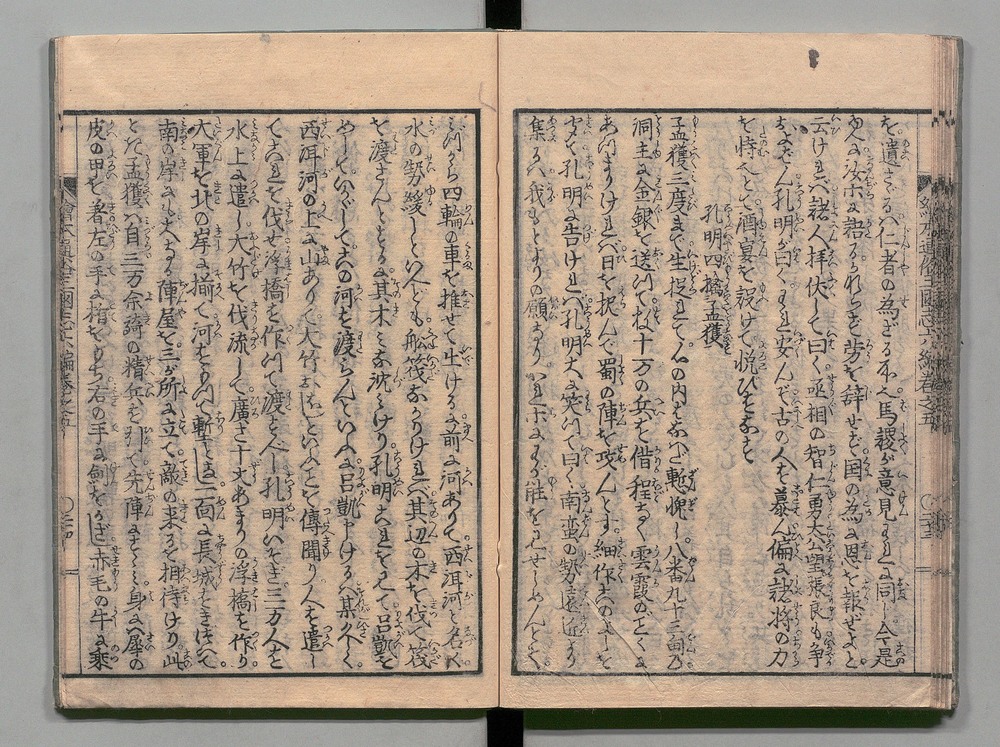 を遺さゞる仁者の為ざる本へ馬謖が意見われと同じ今是
ゆへに汝ホに語るかれら労を辞せず国の為に恩を報ぜよと
云けれバ諸人拝伏して曰く丞相の智仁勇太公望張良も争
およバん孔明が曰くわれ安んぞ古の人を慕ん偏に諸将の力
を恃むとて酒宴を設けて悦びをなす
孔明四擒孟獲
孟獲三度まで生捉れて心の内をふかく慙愧し八番九十三甸乃
洞主に金銀を送つてね十万の兵を借程なく雲霞のごとくに
あつまりけれバ日を択んで蜀の陣を攻んとす細作このよしを
孔明に告けれバ孔明大に笑つて曰く南蛮の勢遠近より
集るハ我もとよりの願なりかれホにわが能を見せしめんとて
みづから四輪の車を推せて出けるに前に河ありて西洱河と名く
水の勢緩しといへども船筏なかりけれバ其辺の木を伐て筏
を渡さんとするに其木みな沈けり孔明これを見て呂凱を
めしていかゞしてこの河を渡らんといへバ呂凱申けるハ某が聞く
西洱河の上に山ありて大竹おほしといへることを傳聞り人を遣し
てこれを伐せ浮橋を作つて渡るべし孔明いそぎ三万人を
水上に遣し大竹を伐流して廣さ十丈あまりの浮橋を作り
大軍を北の岸に揃て河をもつて塹とし一面に長城をきづいて
南の岸にして大なる陣屋を三が所に立て敵の来るを相待けり此
とき孟獲ハ自三万余騎の精兵を引て先陣にすゝミ身にハ犀の
皮の甲を着左の手に楯をもち右の手に劔をかざし赤毛の牛に乗
繪本通俗三國志六編巻之五